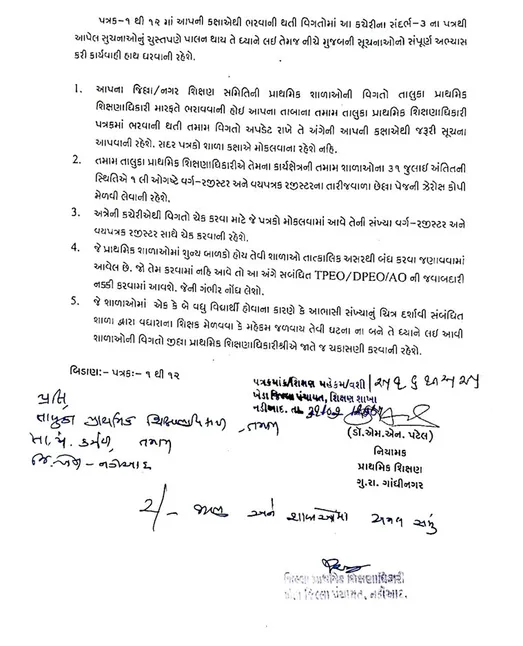 પત્રક-૧ થી ૧૨ માં આપની કક્ષાએથી ભરવાની થતી વિગતોમાં આ કચેરીના સંદર્ભ-3 ના પત્રથી
આપેલ સુચનાઓનું ચુસ્તપણે પાલન થાય તે ધ્યાને લઈ તેમજ નીચે મુજબની સૂચનાઓનો સંપૂર્ણ અભ્યાસ
કરી કાર્યવાહી હાથ ધરવાની રહેશે.
1. આપના જિલ્લા/નગર શિક્ષણ સમિતિની પ્રાથમિક શાળાઓની વિગતો તાલુકા પ્રાથમિક
શિક્ષણાધિકારી મારફતે ભરાવવાની હોઈ આપના તાબાના તમામ તાલુકા પ્રાથમિક શિક્ષણાધિકારી
પત્રકમાં ભરવાની થતી તમામ વિગતો અપડેટ રાખે તે અંગેની આપની કક્ષાએથી જરૂરી સૂચના
આપવાની રહેશે. સદર પત્રકો શાળા કક્ષાએ મોકલવાના રહેશે નહિ.
2. તમામ તાલુકા પ્રાથમિક શિક્ષણાધિકારીએ તેમના કાર્યક્ષેત્રની તમામ શાળાઓના ૩૧ જુલાઈ અંતિતની
સ્થિતિએ ૧ લી ઓગષ્ટે વર્ગ-રજીસ્ટર અને વયપત્રક રજીસ્ટરના તારીજવાળા છેલ્લા પેજની ઝેરોક્ષ કોપી
મેળવી લેવાની રહેશે.
3. અત્રેની કચેરીએથી વિગતો ચેક કરવા માટે જે પત્રકો મોકલવામાં આવે તેની સંખ્યા વર્ગ-રજીસ્ટર અને
વયપત્રક રજીસ્ટર સાથે ચેક કરવાની રહેશે.
4. જે પ્રાથમિક શાળાઓમાં શુન્ય બાળકો હોય તેવી શાળાઓ તાત્કાલિક અસરથી બંધ કરવા જણાવવામાં
આવેલ છે. જો તેમ કરવામાં નહિ આવે તો આ અંગે સબંધિત TPEO/DPEO/AO ની જવાબદારી
નક્કી કરવામાં આવશે. જેની ગંભીર નોંધ લેશો.
5. જે શાળાઓમાં એક કે બે વધુ વિદ્યાર્થી હોવાના કારણે કે આભાસી સંખ્યાનું ચિત્ર દર્શાવી સંબંધિત
શાળા દ્વારા વધારાના શિક્ષક મેળવવા કે મહેકમ જળવાય તેવી ઘટના ના બને તે ધ્યાને લઈ આવી
શાળાઓની વિગતો જીલ્લા પ્રાથમિક શિક્ષણાધિકારીશ્રીએ જાતે જ ચકાસણી કરવાની રહેશે.
બિડાણ:- પત્રક:- ૧ થી ૧૨
પત્રકમાંક/શિક્ષણ મહેકમ/વશી
ખેડા જિલ્લા પંચાયત, શિક્ષણ શાખા
નડીઆદ. તા.
પ્રતિ
તાલુકા પ્રાથમિક શિક્ષણાધિકારી, તમામ
તા.પં. કચેરી, તમામ
જિ.ખેડા - નડીઆદ
(ડૉ.એમ.એન. પટેલ)
નિયામક
પ્રાથમિક શિક્ષણ
ગુ.રા. ગાંધીનગર
2/- જાણ અને શાળાઓમાં અમલ સારું
જિલ્લા પ્રાથમિક શિક્ષણાધિકારી
ખેડા જિલ્લા પંચાયત, નડીઆદ.